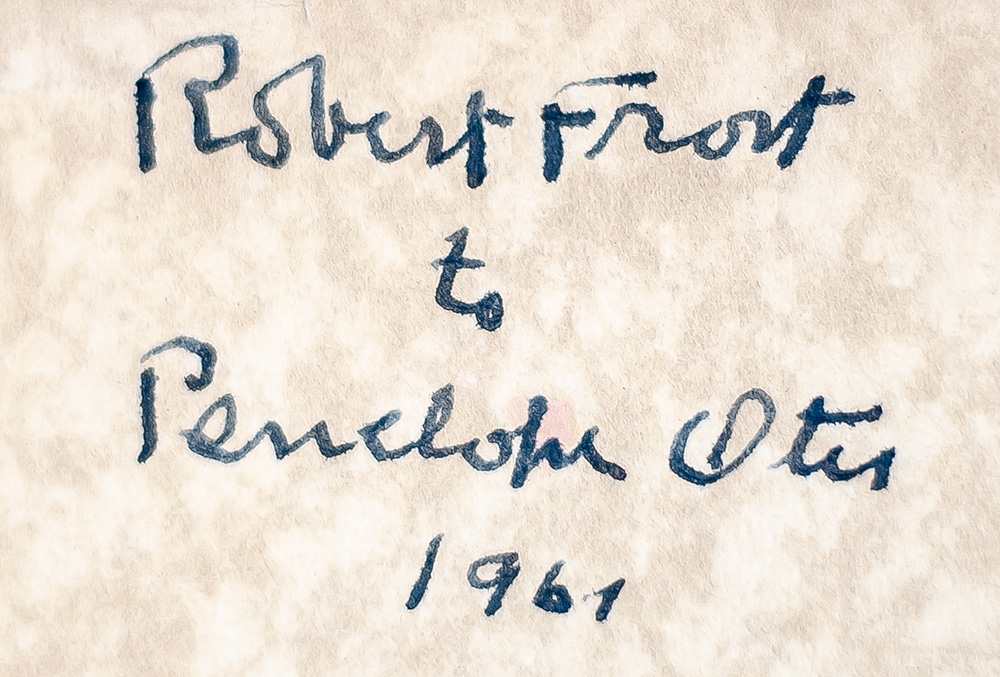 Robert Frost
to
Penelope Otis
1961